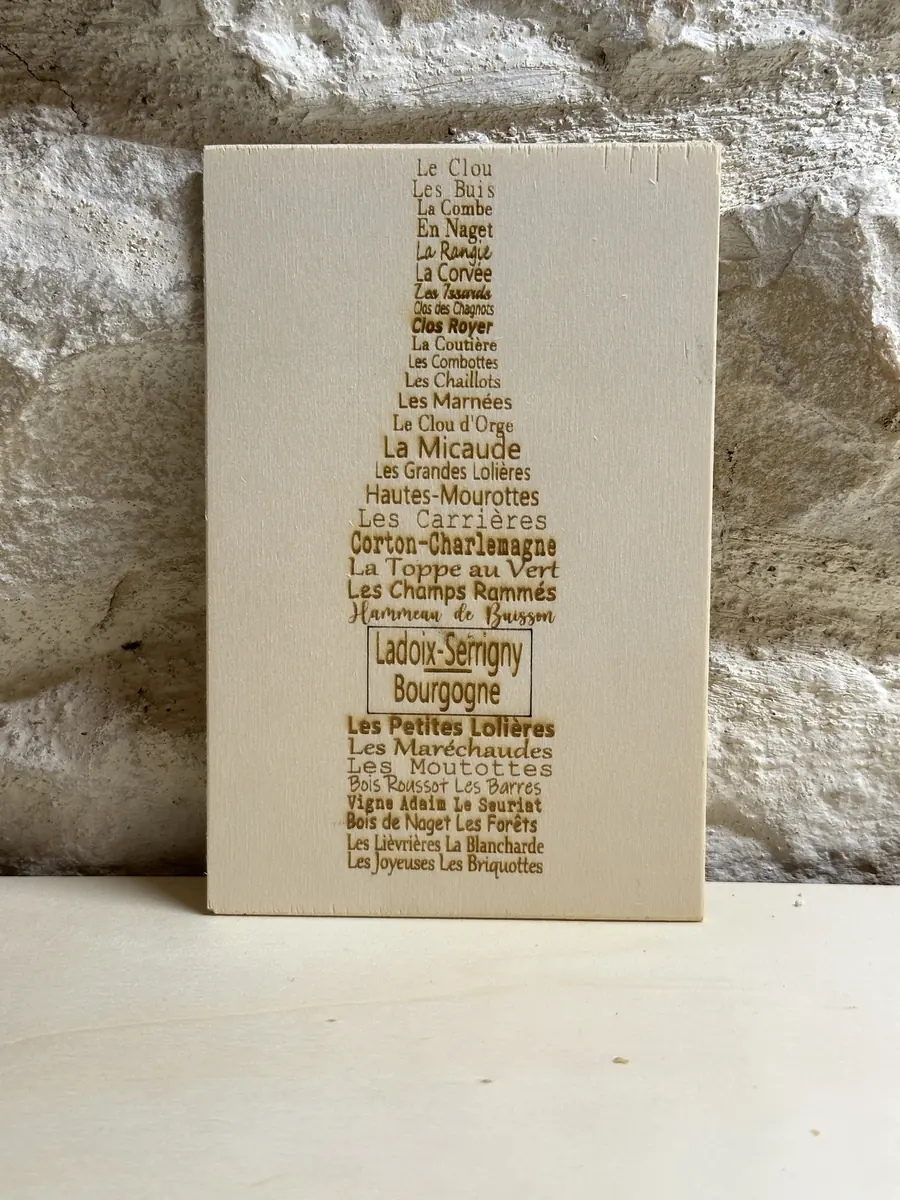 Le Clou
Les Buis
La Combe
En Naget
La Rangie
La Corvée
Les Issards
Clos des Chagnots
Clos Royer
La Coutière
Les Combottes
Les Chaillots
Les Marnées
Le Clou d'Orge
La Micaude
Les Grandes Lolières
Hautes-Mourottes
Les Carrières
Corton-Charlemagne
La Toppe au Vert
Les Champs Rammés
Hammeau de Buisson
Ladoix-Serrigny
Bourgogne
Les Petites Lolières
Les Maréchaudes
Les Moutottes
Bois Roussot Les Barres
Vigne Adaim Le Seuriat
Bois de Naget Les Forêts
Les Lièvrières La Blancharde
Les Joyeuses Les Briquottes